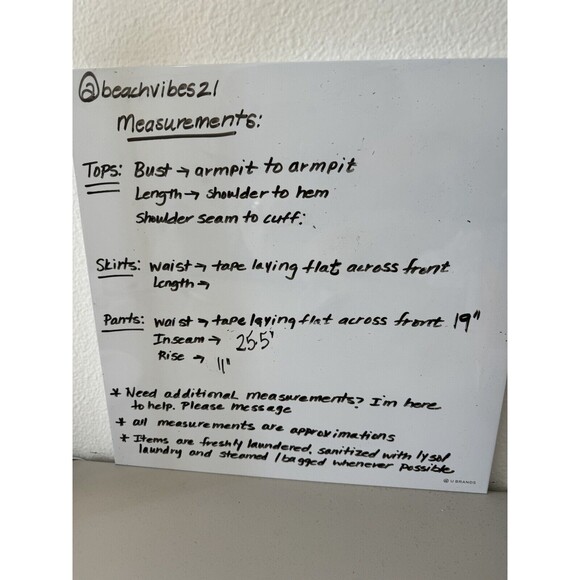 @beachvibes21
Measurements:
Tops: Bust → armpit to armpit
Length → shoulder to hem
Shoulder seam to cuff:
Skirts: waist → tape laying flat across front
Length →
Pants: waist → tape laying flat across front 19"
Inseam → 25.5"
Rise → 11"
* Need additional measurements? I'm here
to help. Please message
* all measurements are approximations
* Items are freshly laundered, sanitized with lysol
laundry and steamed / bagged whenever possible
U BRANDS